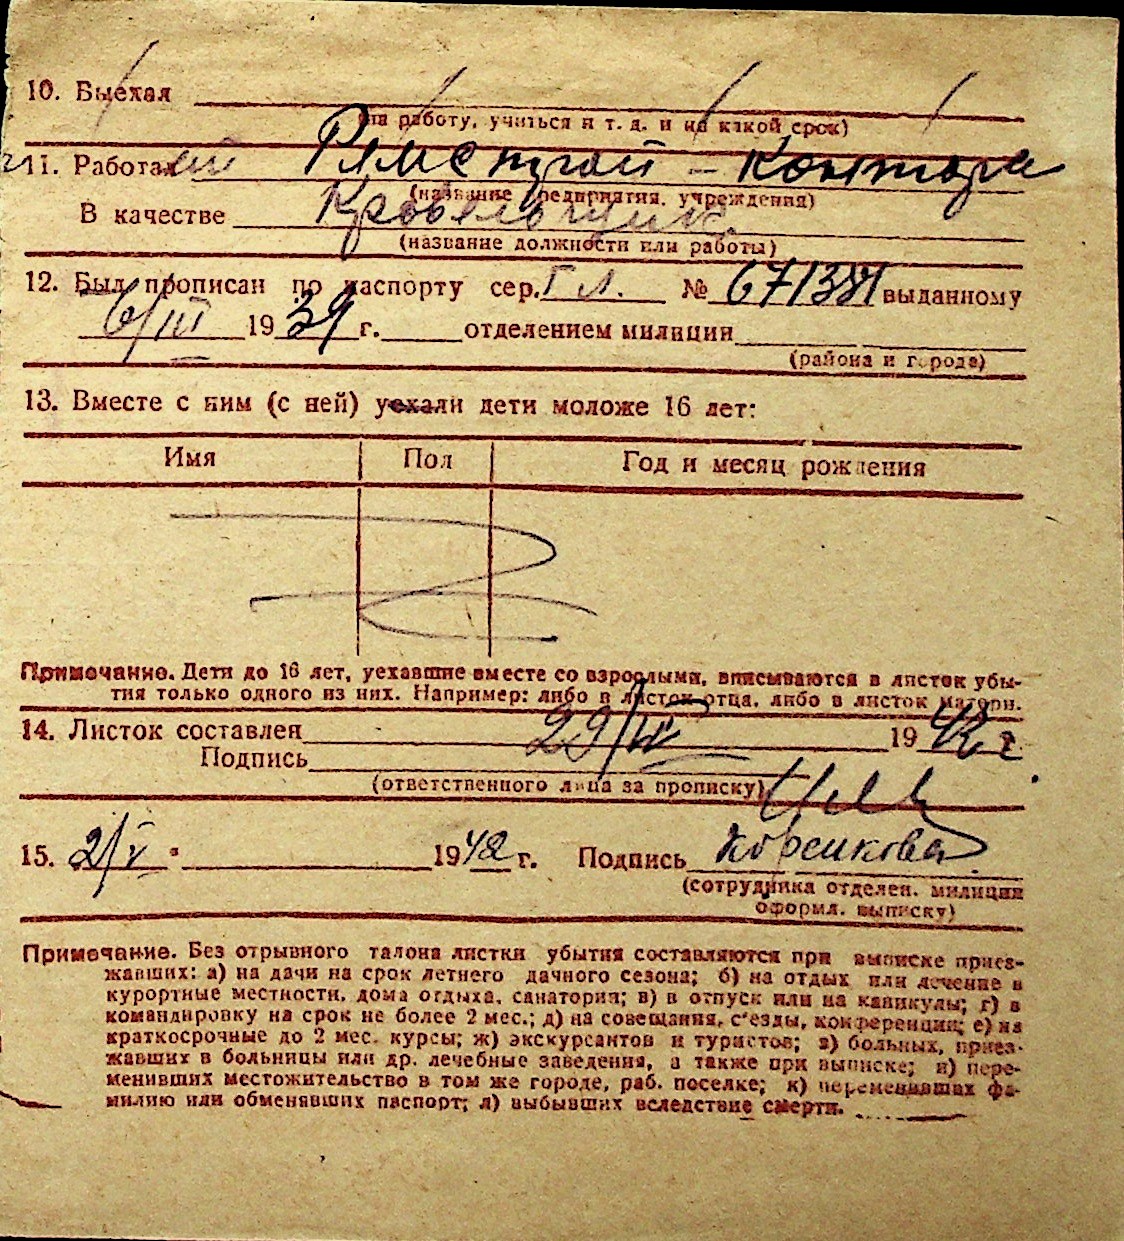 10. Выехал
(на работу, учиться и т. д. и на какой срок)
11. Работал Ремстрой - контора
(название предприятия, учреждения)
В качестве Кровельщик
(название должности или работы)
12. Был прописан по паспорту сер. ГЛ. № 671381 выданному
6/III 1939 г. отделением милиции
(района и города)
13. Вместе с ним (с ней) уехали дети моложе 16 лет:
Имя Пол Год и месяц рождения
Примечание. Дети до 16 лет, уехавшие вместе со взрослыми, вписываются в листок убы-
тия только одного из них. Например: либо в листок отца, либо в листок матери.
14. Листок составлен 29/IV 1942 г
Подпись
(ответственного лица за прописку)
15. 2/V 1942 г. Подпись
(сотрудника отделен. милиции
оформл. выписку)
Примечание. Без отрывного талона листки убытия составляются при выписке приез-
жавших: а) на дачи на срок летнего дачного сезона; б) на отдых или лечение в
курортные местности, дома отдыха, санатории; в) в отпуск или на каникулы; г) в
командировку на срок не более 2 мес.; д) на совещания, с'езды, конференции; е) на
краткосрочные до 2 мес. курсы; ж) экскурсантов и туристов; з) больных, приез-
жавших в больницы или др. лечебные заведения, а также при выписке; и) пере-
менивших местожительство в том же городе, раб. поселке; к) переменивших фа-
милию или обменявших паспорт; л) выбывших вследствие смерти.